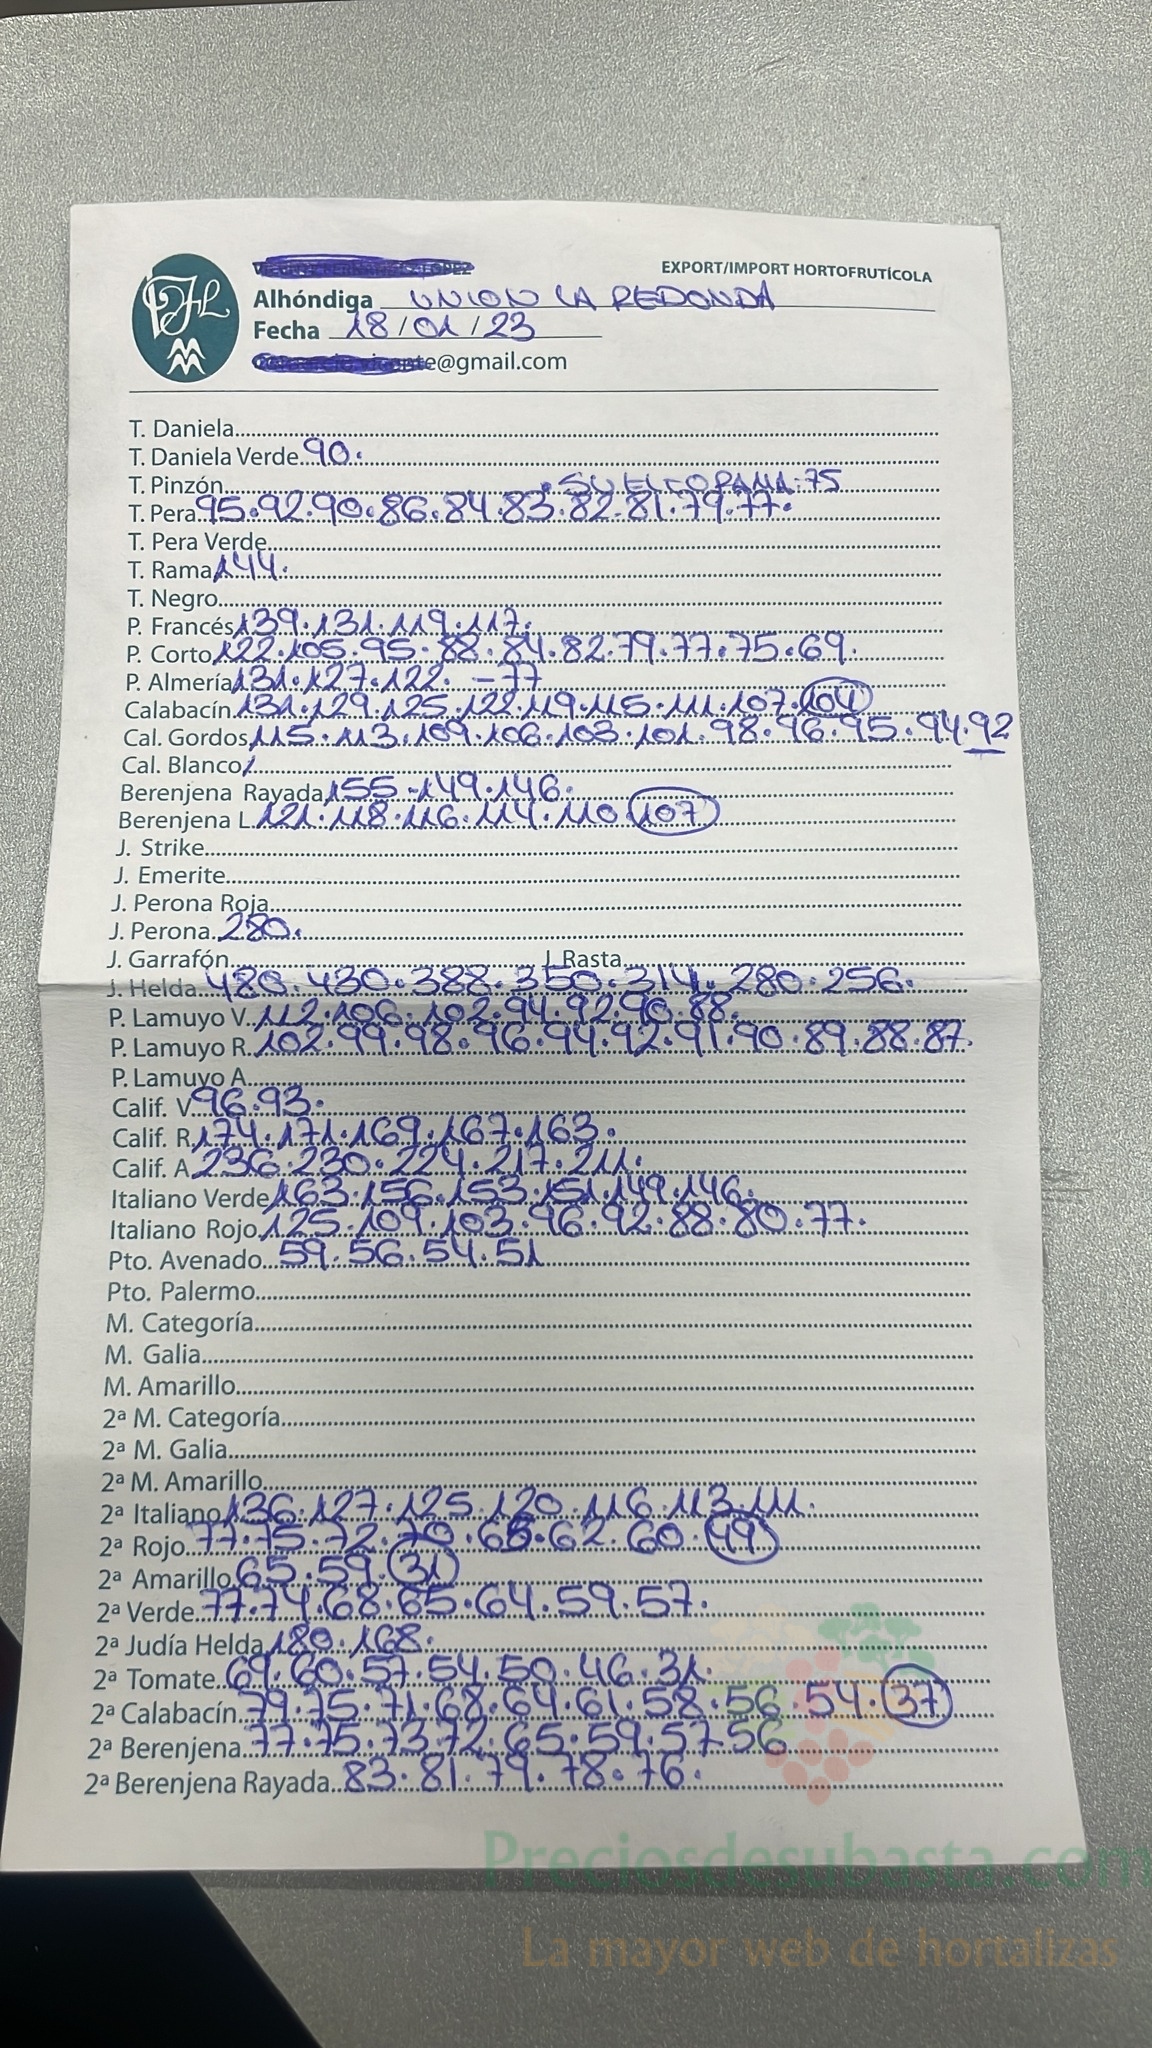 EXPORT/IMPORT HORTOFRUTÍCOLA
Alhóndiga UNION LA REDONDA
Fecha 18/01/23
e@gmail.com
T. Daniela
T. Daniela Verde 90.
T. Pinzón . SUELTO RAMA: 75
T. Pera 95.92.90.86.84.83.82.81.79.77.
T. Pera Verde
T. Rama 144.
T. Negro
P. Francés 139.131.119.117.
P. Corto 122.105.95.88.84.82.79.77.75.69.
P. Almería 131.127.122. -77
Calabacín 131.129.125.122.119.115.111.107.104
Cal. Gordos 115.113.109.106.103.101.98.96.95.94.92
Cal. Blanco
Berenjena Rayada 155.149.146.
Berenjena L. 121.118.116.114.110.107
J. Strike
J. Emerite
J. Perona Roja
J. Perona 280.
J. Garrafón J. Rasta
J. Helda 480.430.388.350.314.280.256.
P. Lamuyo V. 112.106.102.94.92.90.88.
P. Lamuyo R. 102.99.98.96.94.92.91.90.89.88.87.
P. Lamuyo A.
Calif. V. 96.93.
Calif. R. 174.171.169.167.163.
Calif. A. 236.230.224.217.211.
Italiano Verde 163.156.153.151.149.146.
Italiano Rojo 125.109.103.96.92.88.80.77.
Pto. Avenado 59.56.54.51
Pto. Palermo
M. Categoría
M. Galia
M. Amarillo
2ª M. Categoría
2ª M. Galia
2ª M. Amarillo
2ª Italiano 136.127.125.120.116.113.111.
2ª Rojo 77.75.72.70.65.62.60.49
2ª Amarillo 65.59.31
2ª Verde 77.74.68.65.64.59.57.
2ª Judía Helda 180.168.
2ª Tomate 69.60.57.54.50.46.31.
2ª Calabacín 79.75.71.68.64.61.58.56.54.37
2ª Berenjena 77.75.73.72.65.59.57.56
2ª Berenjena Rayada 83.81.79.78.76.
Preciosdesubasta.com
La mayor web de hortalizas